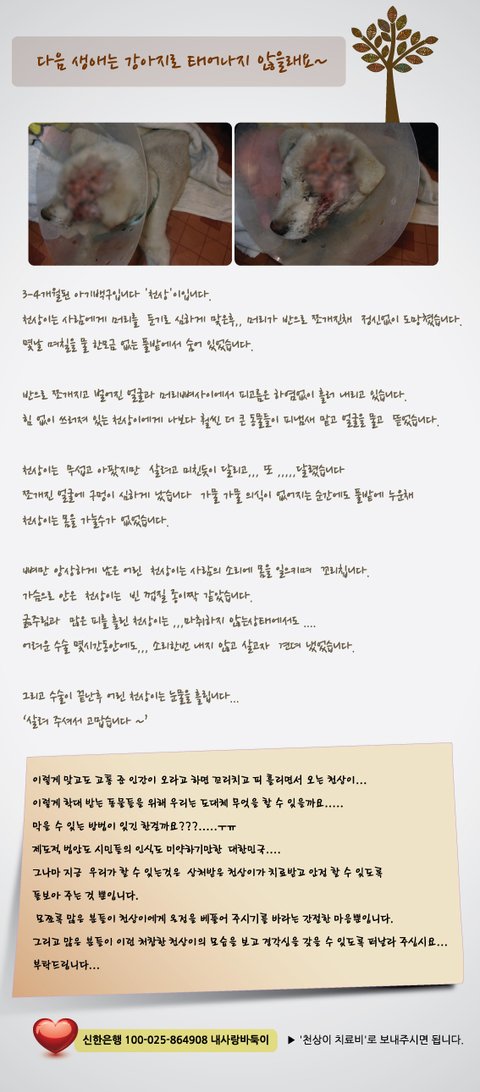 다음 생애는 강아지로 태어나지 않을래요~
3-4개월된 아기백구입니다 '천상'이입니다.
천상이는 사람에게 머리를 둔기로 심하게 맞은후,, 머리가 반으로 쪼개진채 정신없이 도망쳤습니다.
몇날 며칠을 물 한모금 없는 풀밭에서 숨어 있었습니다.
반으로 쪼개지고 벌어진 얼굴과 머리뼈사이에서 피고름은 하염없이 흘러 내리고 있습니다.
힘 없이 쓰러져 있는 천상이에게 나보다 훨씬 더 큰 동물들이 피냄새 맡고 얼굴을 물고 뜯었습니다.
천상이는 무섭고 아팠지만 살려고 미친듯이 달리고,,, 또 ,,,,,달렸습니다
쪼개진 얼굴에 구멍이 심하게 났습니다 가물 가물 의식이 없어지는 순간에도 풀밭에 누운채
천상이는 몸을 가눌수가 없었습니다.
뼈만 앙상하게 남은 어린 천상이는 사람의 소리에 몸을 일으키며 꼬리칩니다.
가슴으로 안은 천상이는 빈 껍질 종이짝 같았습니다.
굶주림과 많은 피를 흘린 천상이는 ,,,마취하지 않는상태에서도 ....
어려운 수술 몇시간동안에도,,, 소리한번 내지 않고 살고자 견뎌 냈었습니다.
그리고 수술이 끝난후 어린 천상이는 눈물을 흘립니다...
'살려 주셔서 고맙습니다 ~'
이렇게 맞고도 고통 준 인간이 오라고 하면 꼬리치고 피 흘리면서 오는 천상이...
이렇게 학대 받는 동물들을 위해 우리는 도대체 무엇을 할 수 있을까요.....
막을 수 있는 방법이 있긴 한걸까요???.....ㅜㅠ
제도적 법안도 시민들의 인식도 미약하기만한 대한민국....
그나마 지금 우리가 할 수 있는것은 상처받은 천상이가 치료받고 안정 할 수 있도록
돌보아 주는 것 뿐입니다.
모쪼록 많은 분들이 천상이에게 온정을 베풀어 주시기를 바라는 간절한 마음뿐입니다.
그리고 많은 분들이 이런 처참한 천상이의 모습을 보고 경각심을 갖을 수 있도록 퍼날라 주십시요...
부탁드립니다...
신한은행 100-025-864908 내사랑바둑이 ▶ '천상이 치료비'로 보내주시면 됩니다.